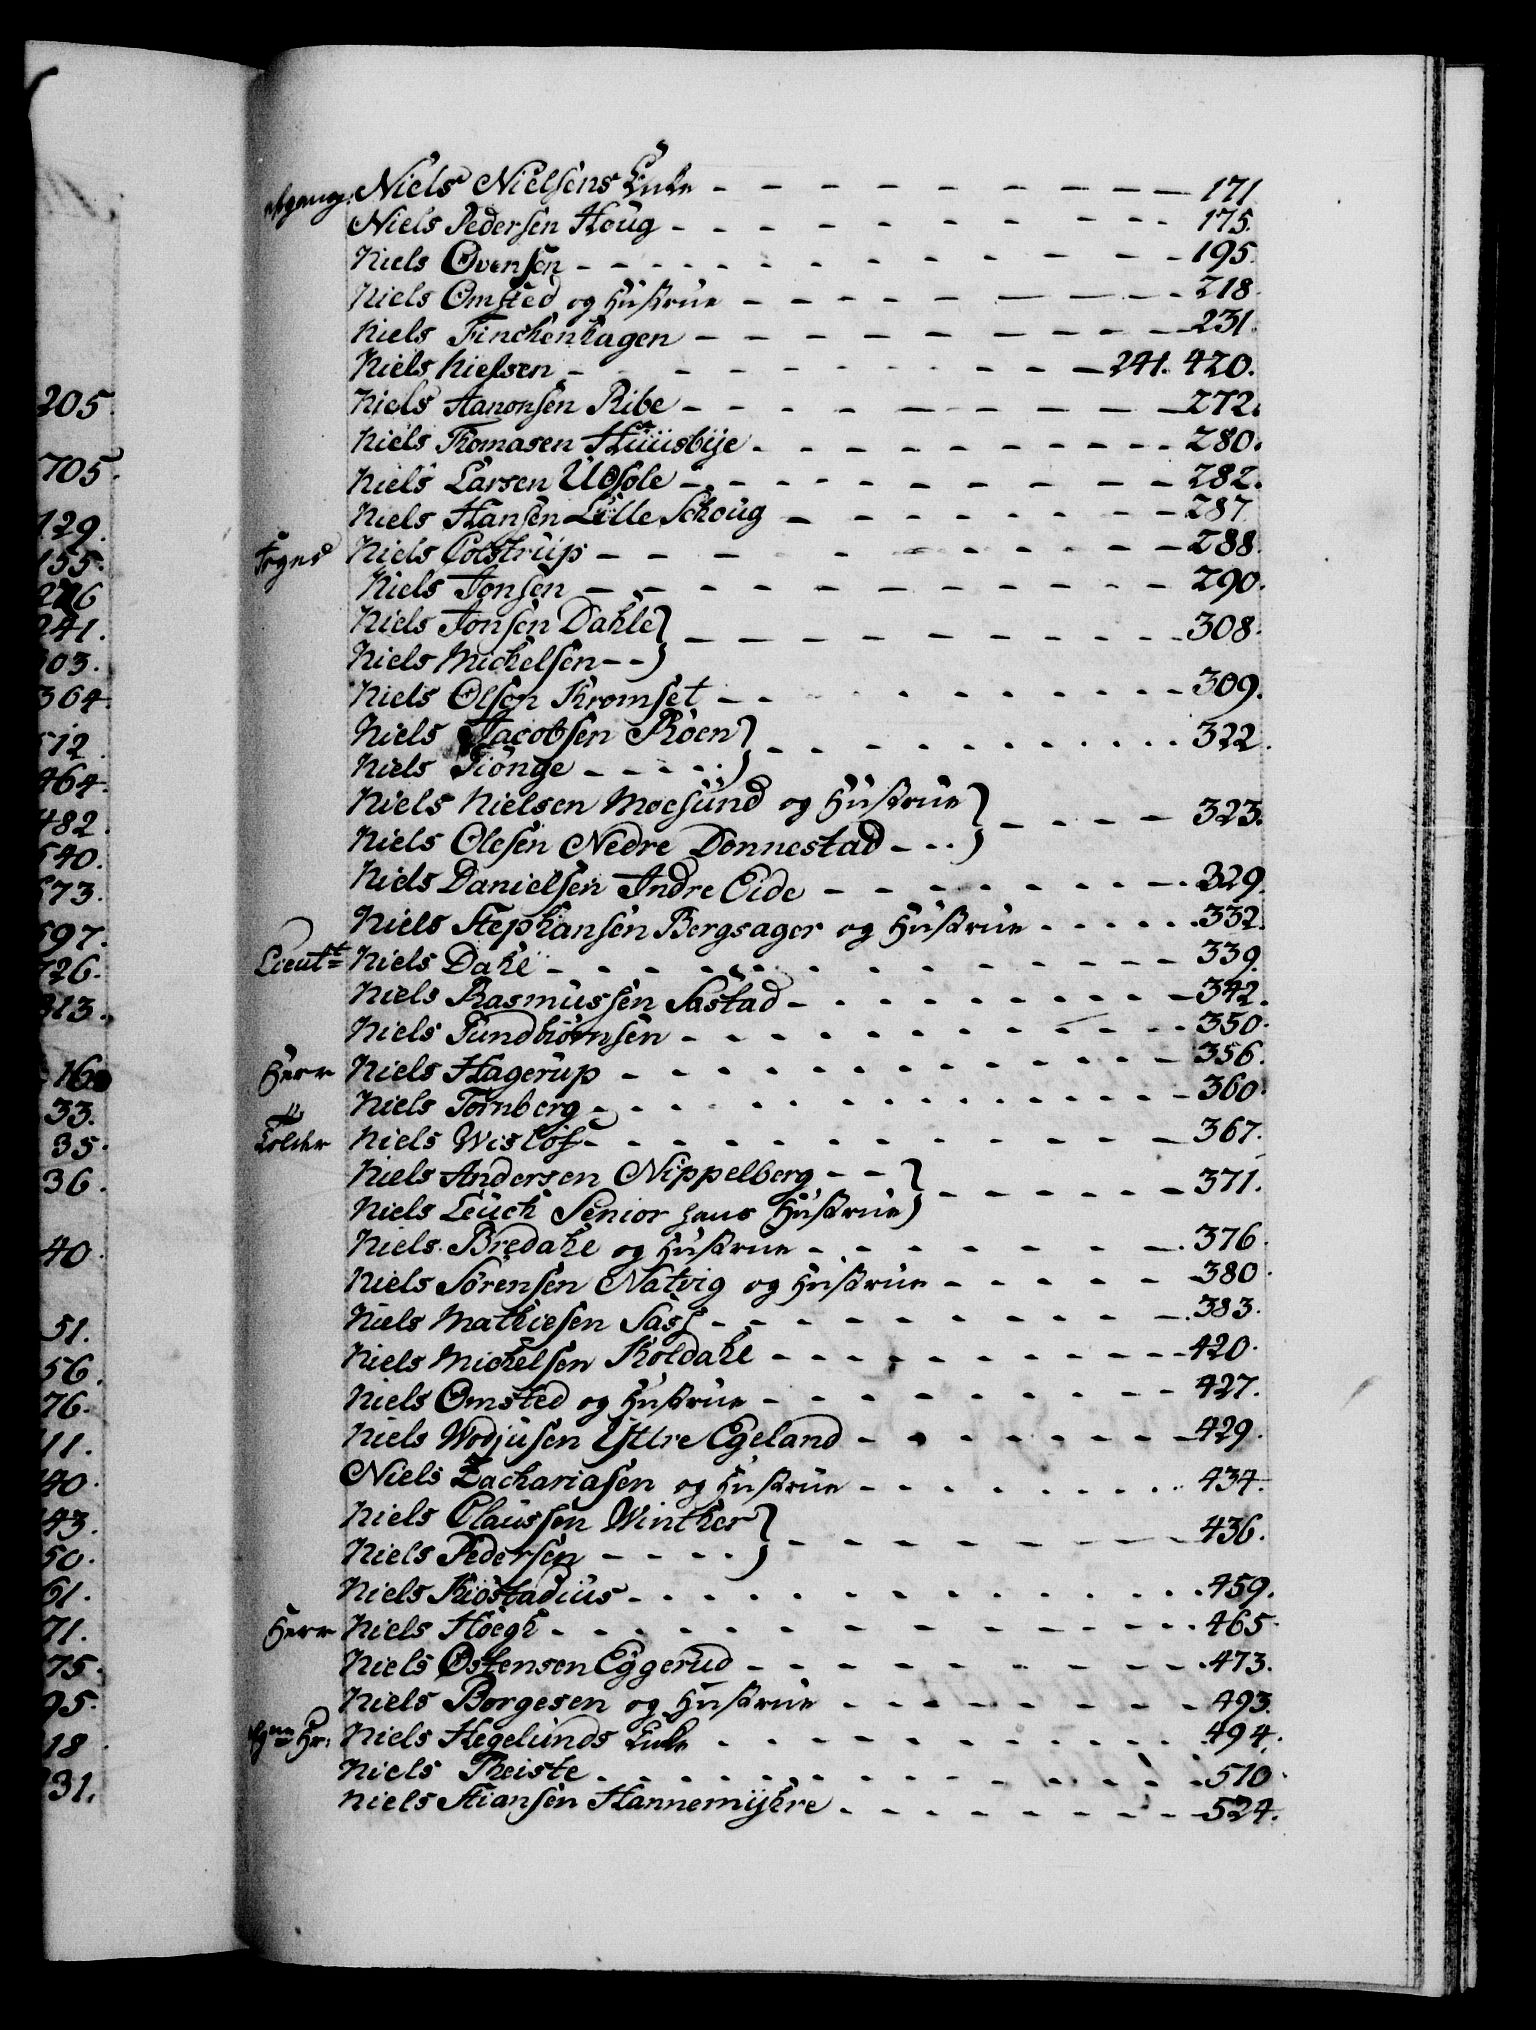 afgang. Niels Nielsens Enke - - - - - - - - - 171
Niels Pedersen Houg - - - - - - - - - 175.
Niels Ovensen - - - - - - - - - 195.
Niels Omsted og Hustrue - - - - - - - - 218.
Niels Finckenhagen - - - - - - - - 231.
Niels Nielsen - - - - - - - - 241. 420.
Niels Aanonsen Ribe - - - - - - - - 272.
Niels Thomasen Huusbye - - - - - - - - 280.
Niels Larsen Udsole - - - - - - - - 282.
Niels Hansen Lille Schoug - - - - - - - 287.
Niels Colstrup - - - - - - - - 288.
Niels Jonsen - - - - - - - - 290.
Niels Jonsen Dahle } - - - - - - - - 308.
Niels Michelsen - - }
Niels Olson Kromset - - - - - - - - 309.
Niels Jacobsen Roen } - - - - - - - - 322.
Niels Tionge - - - - - }
Niels Nielsen Moesund og Hustrue } - - - - 323.
Niels Olesen Nedre Donnestad - - - }
Niels Danielsen Indre Eide - - - - - - - 329.
Niels Stephansen Bergsager og Hustrue - - - - - 332.
Lieutt: Niels Dahl - - - - - - - - 339.
Niels Rasmussen Sastad - - - - - - - - 342.
Niels Gundbiørnsen - - - - - - - - 350.
Herr Niels Hagerup - - - - - - - - 356.
" Niels Tornberg - - - - - - - - 360.
Tolder Niels Wisløf - - - - - - - - 367.
Niels Andersen Nippelberg - - } - - - - - - 371.
Niels Leuch Senior hans Hustrue }
Niels Bredahl og Hustrue - - - - - - - 376.
Niels Sørensen Natvig og Hustrue - - - - - 380.
Niels Mathiesen Sass - - - - - - - - 383.
Niels Michelsen Koldahl - - - - - - - - 420.
Niels Omsted og Hustrue - - - - - - - - 427.
Niels Wodjusen Yttre Egeland - - - - - - - 429.
Niels Zachariasen og Hustrue - - - - - - - 434.
Niels Claussen Winther } - - - - - - - 436.
Niels Pedersen - - - - - }
Niels Kiostadius - - - - - - - - 459.
Herr Niels Høegh - - - - - - - - 465.
Niels Østensen Eggerud - - - - - - - - 473.
Niels Borgesen og Hustrue - - - - - - - 493.
Hr: Niels Hegelunds Enke - - - - - - - - 494.
Niels Theiste - - - - - - - - 510.
Niels Stiansen Hannemyhre - - - - - - - 524.
205.
705.
129.
155.
226
241.
303.
364
512
464.
482.
540.
573.
597.
726.
813.
16
33.
35.
36.
40.
51.
56.
76.
11.
40.
43.
50.
61.
71.
75.
95.
18
31.